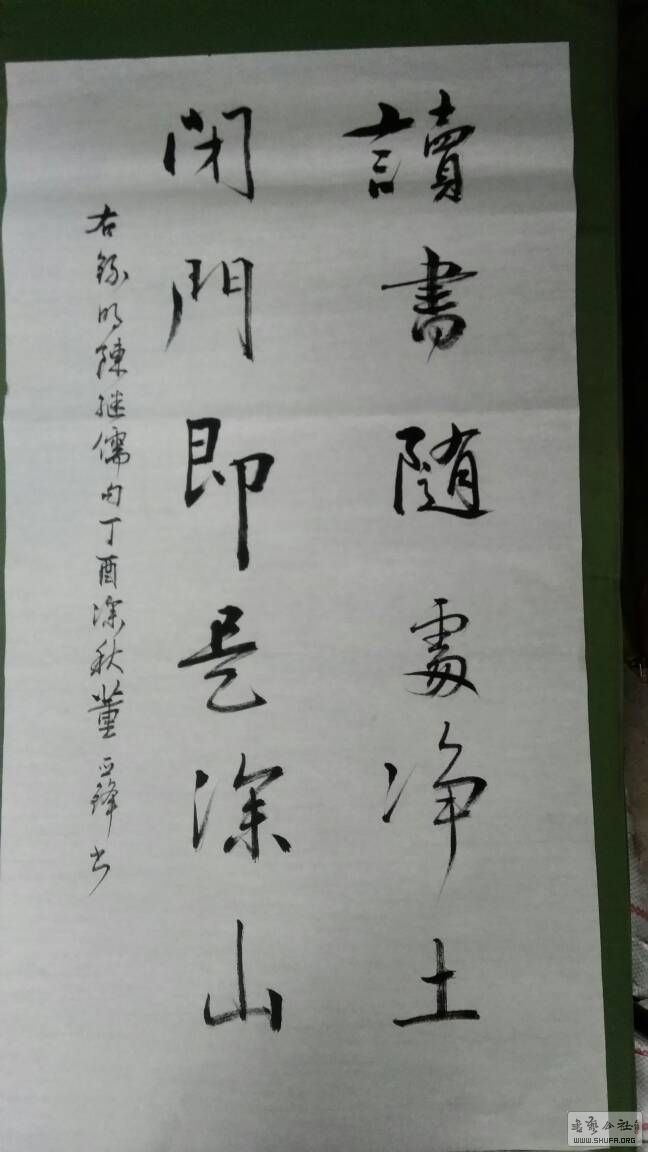 讀書随處净土
閉門即是深山
右錄明陳继儒句丁酉深秋董亚鋒书
书艺公社
WWW.SHUFA.ORG